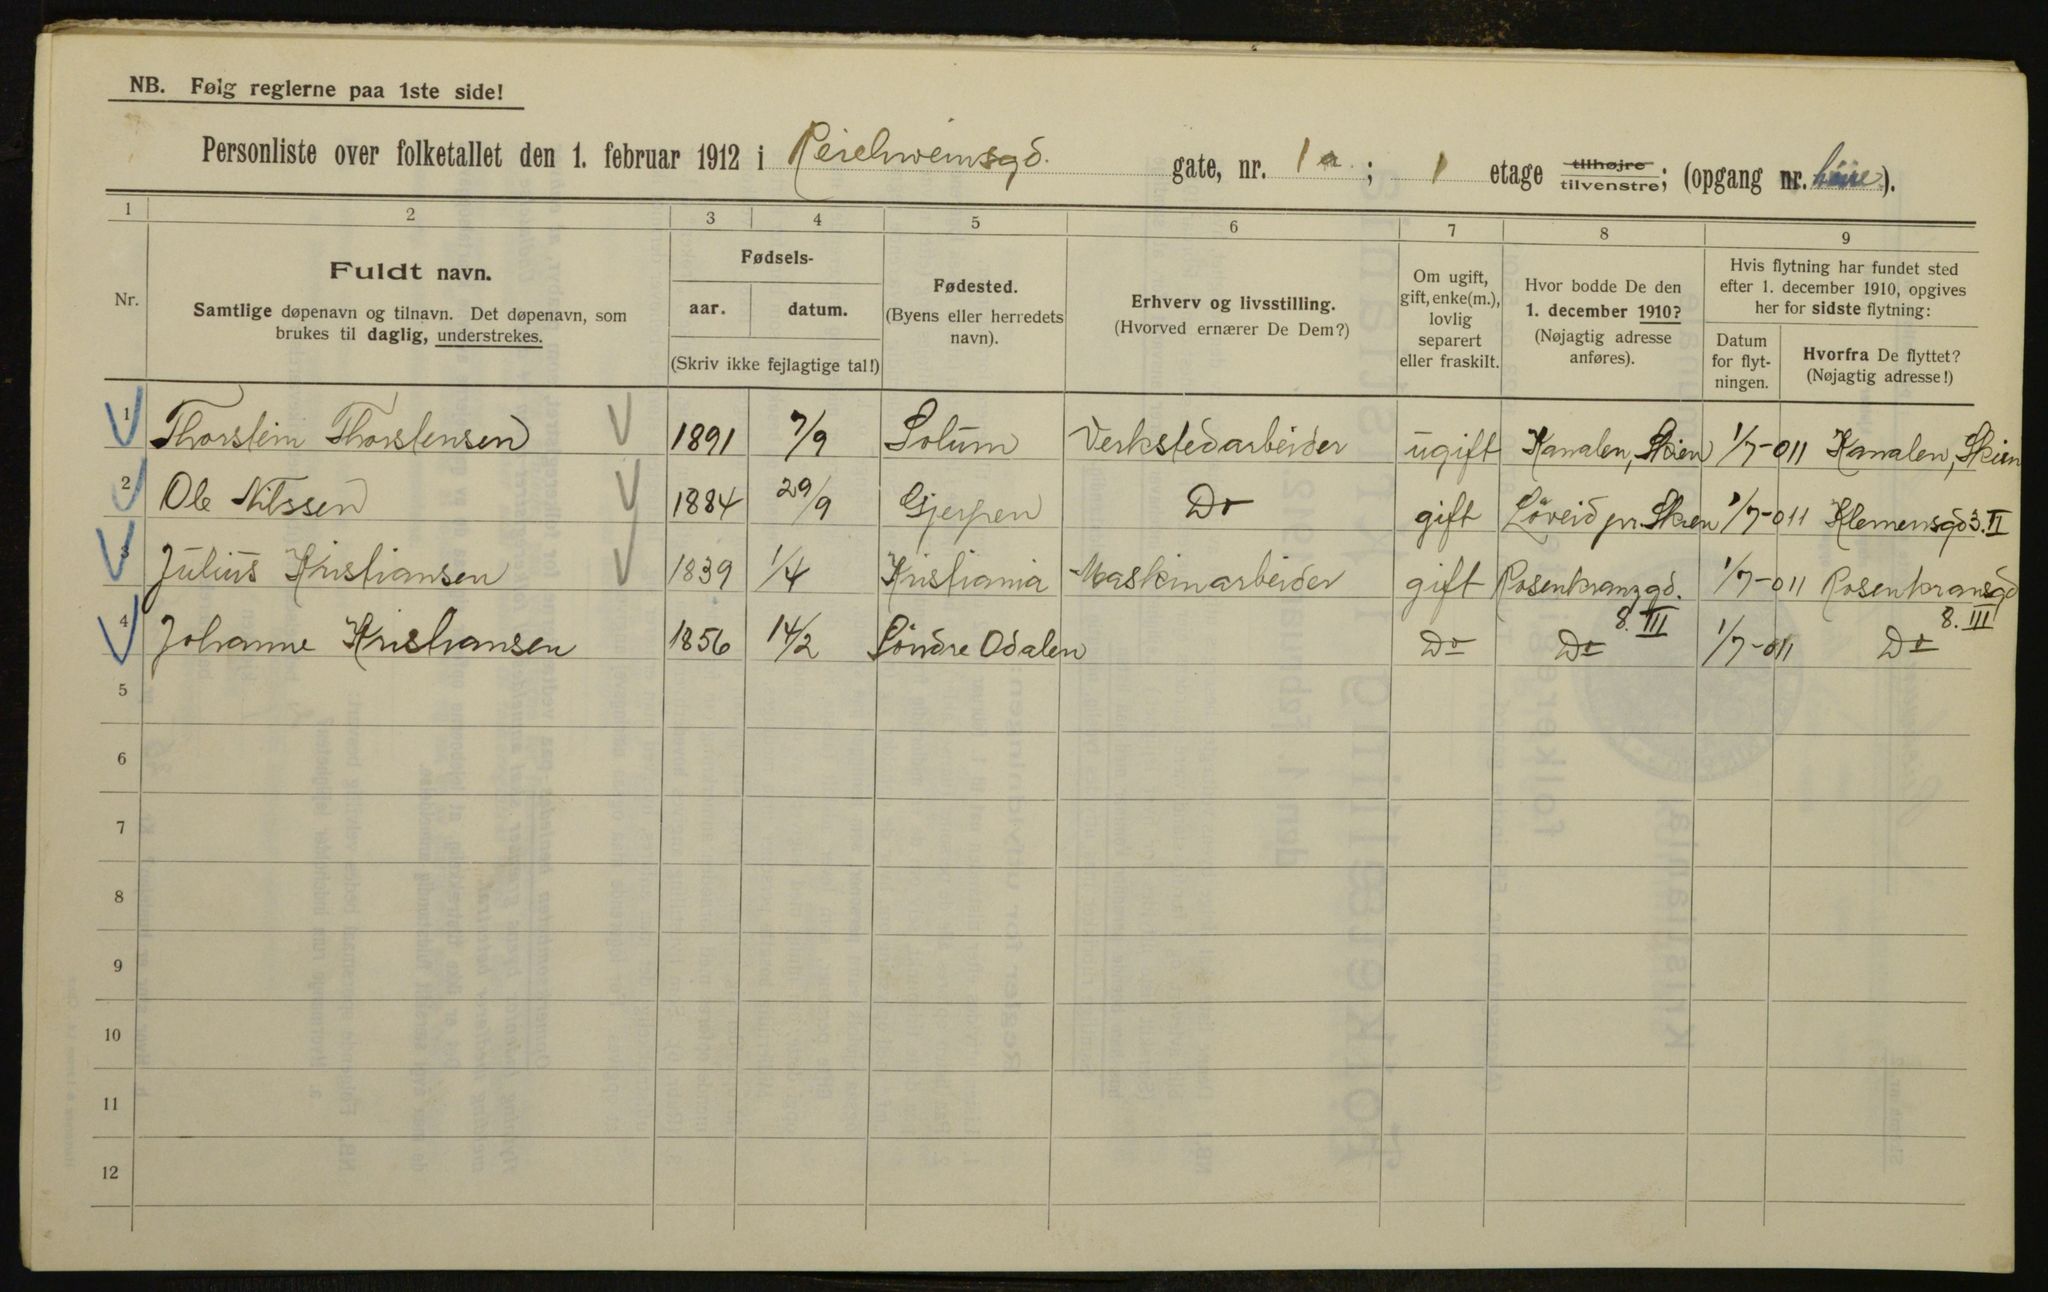 NB. Følg reglerne paa 1ste side!
Personliste over folketallet den 1. februar 1912 i Reichweinsgd. gate, nr. 1 a ; 1 etage tilhøjre tilvenstre; (opgang nr. höire).
1 2 3 4 5 6 7 8 9
Nr.
Fuldt navn.
Samtlige døpenavn og tilnavn. Det døpenavn, som
brukes til daglig, understrekes.
Fødsels-
aar. datum.
(Skriv ikke fejlagtige tal!)
Fødested.
(Byens eller herredets
navn).
Erhverv og livsstilling.
(Hvorved ernærer De Dem?)
Om ugift,
gift, enke(m.),
lovlig
separert
eller fraskilt.
Hvor bodde De den
1. december 1910?
(Nøjagtig adresse
anføres).
Hvis flytning har fundet sted
efter 1. december 1910, opgives
her for sidste flytning:
Datum
for flyt-
ningen.
Hvorfra De flyttet?
(Nøjagtig adresse!)
1 Thorstein Thorstensen 1891 7/9 Solum Verkstedarbeider ugift Kanalen, Skien 1/7-011 Kanalen, Skien
2 Ole Nilssen 1884 29/9 Gjerpen Do gift Löveid pr. Skien 1/7-011 Klemensgd 3. II
3 Julius Kristiansen 1839 1/4 Kristiania Maskinarbeider gift Rosenkranzgd. 8. III 1/7-011 Rosenkransgd 8. III
4 Johanne Kristiansen 1856 14/2 Söndre Odalen Do Do 1/7-011 Do
5
6
7
8
9
10
11
12